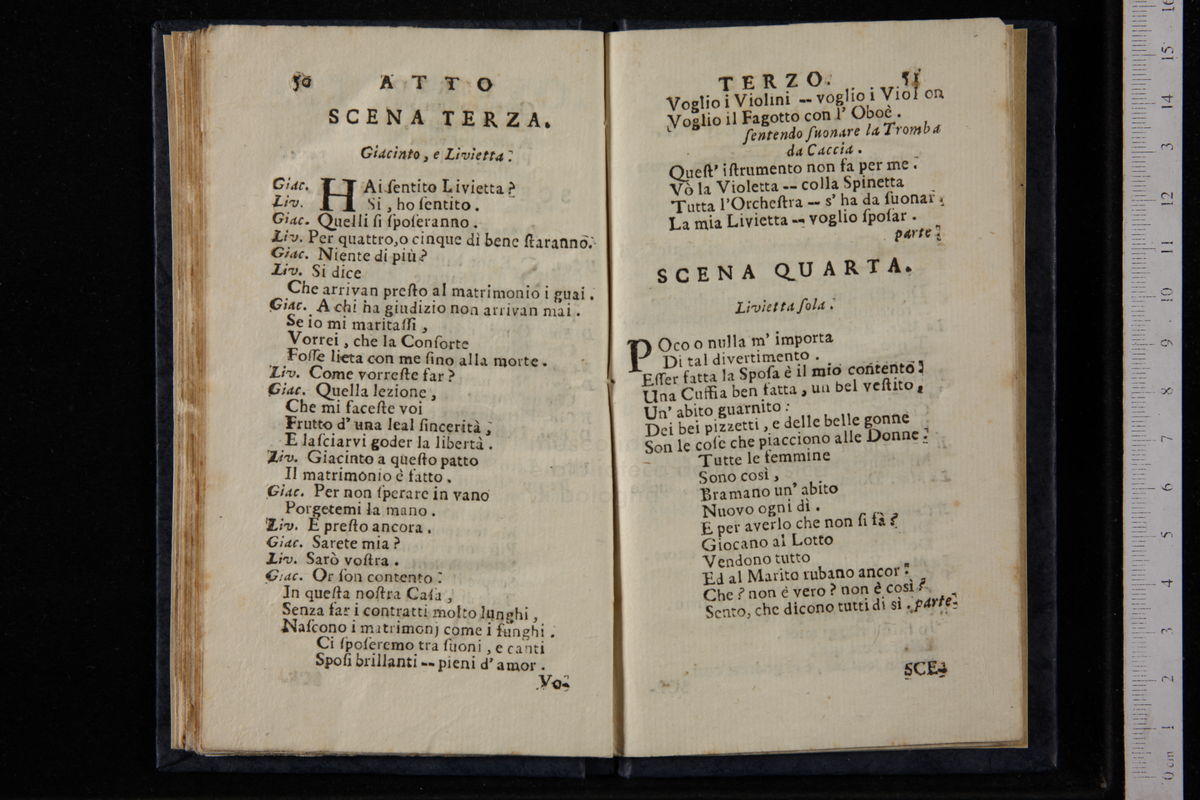 50 ATTO
SCENA TERZA.
Giacinto, e Livietta.
Giac. HAi ſentito Livietta?
Liv. Si, ho ſentito.
Giac. Quelli ſi ſpoſeranno.
Liv. Per quattro, o cinque dì bene ſtaranno.
Giac. Niente di più?
Liv. Si dice
Che arrivan preſto al matrimonio i guai.
Giac. A chi ha giudizio non arrivan mai.
Se io mi maritaſſi,
Vorrei, che la Conſorte
Foſſe lieta con me ſino alla morte.
Liv. Come vorreſte far?
Giac. Quella lezione,
Che mi faceſte voi
Frutto d' una leal ſincerità,
E laſciarvi goder la libertà.
Liv. Giacinto a queſto patto
Il matrimonio è fatto.
Giac. Per non ſperare in vano
Porgetemi la mano.
Liv. E preſto ancora.
Giac. Sarete mia?
Liv. Sarò voſtra.
Giac. Or ſon contento:
In queſta noſtra Caſa,
Senza far i contratti molto lunghi,
Naſcono i matrimonj come i funghi.
Ci ſpoſeremo tra ſuoni, e canti
Spoſi brillanti -- pieni d' amor.
Vo-
TERZO. 51
Voglio i Violini -- voglio i Violon
Voglio il Fagotto con l' Oboè.
ſentendo ſuonare la Tromba
da Caccia.
Queſt' iſtrumento non fa per me.
Vò la Violetta -- colla Spinetta
Tutta l'Orcheſtra -- s' ha da ſuonar,
La mia Livietta -- voglio ſpoſar.
parte.
SCENA QUARTA.
Livietta ſola.
POco o nulla m' importa
Di tal divertimento.
Eſſer fatta la Spoſa è il mio contento:
Una Cuffia ben fatta, un bel veſtito,
Un' abito guarnito:
Dei bei pizzetti, e delle belle gonne
Son le coſe che piacciono alle Donne:
Tutte le femmine
Sono così,
Bramano un' abito
Nuovo ogni dì.
E per averlo che non ſi fà?
Giocano al Lotto
Vendono tutto
Ed al Marito rubano ancor:
Che? non è vero? non è così?
Sento, che dicono tutti di sì. parte.
SCE-
16
15
14
13
12
11
10
9
8
7
6
5
4
3
2
1
0 cm